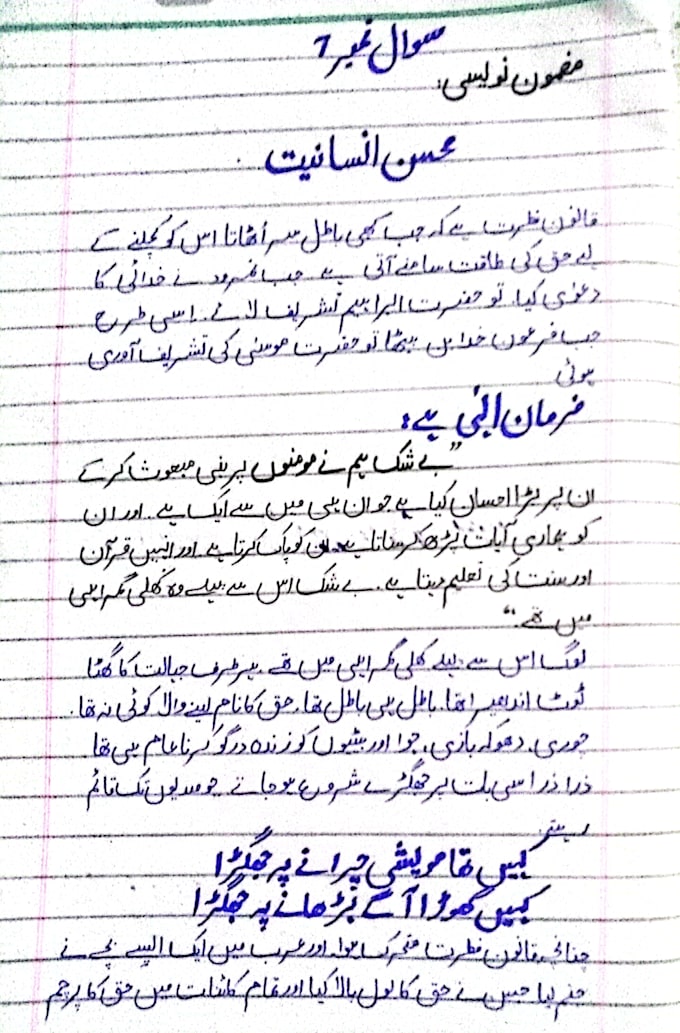 سوال نمبر 7
مضمون نویسی:
محسن انسانیت
قانون فطرت ہے کہ جب کبھی باطل سر اُٹھاتا اس کو کچلنے کے
لیے حق کی طاقت سامنے آتی ہے جب نمرود نے خدائی کا
دعویٰ کیا تو حضرت ابراہیم تشریف لائے۔ اسی طرح
جب فرعون خدا بن بیٹھا تو حضرت موسیٰ کی تشریف آوری
ہوئی
فرمان الٰہی ہے:
"بے شک ہم نے مومنوں پر نبی مبعوث کر کے
ان پر بڑا احسان کیا ہے جو ان ہی میں سے ایک ہے۔ اور ان
کو ہماری آیات پڑھ کر سناتا ہے ان کو پاک کرتا ہے اور انہیں قرآن
اور سنت کی تعلیم دیتا ہے۔ بے شک اس سے پہلے وہ کھلی گمراہی
میں تھے۔"
لوگ اس سے پہلے کھلی گمراہی میں تھے۔ ہر طرف جہالت کا گھٹا
ٹوٹ اندھیرا تھا۔ باطل ہی باطل تھا۔ حق کا نام لینے والا کوئی نہ تھا۔
چوری، دھوکہ بازی، جوا اور بیٹیوں کو زندہ درگو کرنا عام ہی تھا
ذرا ذرا سی بات پر جھگڑے شروع ہو جاتے جو صدیوں تک قائم
رہتے۔
کہیں تھا مویشی چرانے پہ جھگڑا
کہیں گھوڑا آگے بڑھانے پہ جھگڑا
چنانچہ قانون فطرت متحرک ہوا اور عرب میں ایک ایسے بچے نے
جنم لیا جس نے حق کا بول بالا کیا اور تمام کائنات میں حق کا پرچم